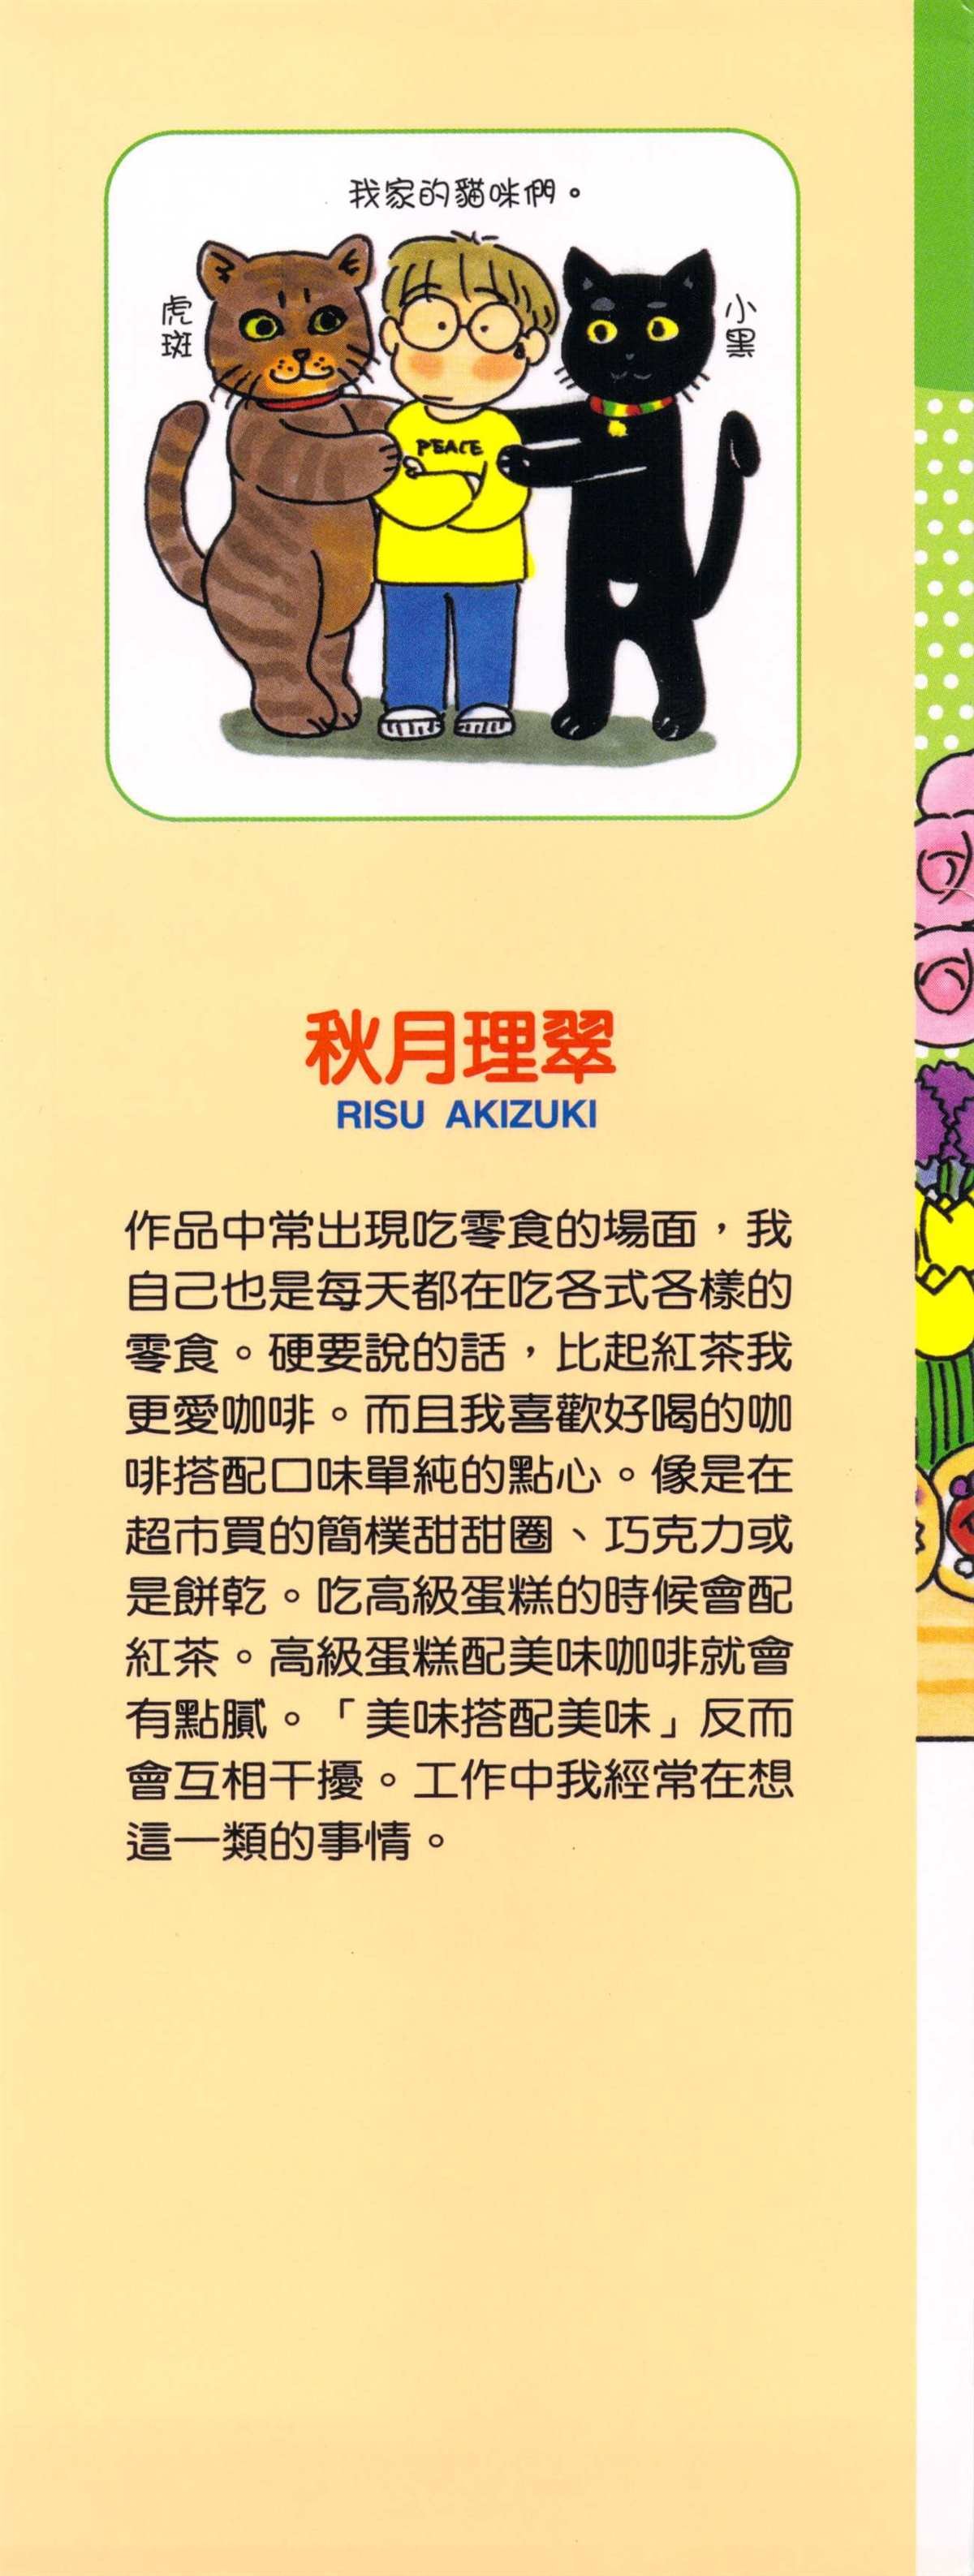 我家的貓咪們。
虎斑
小黑
PEACE
秋月理翠
RISU AKIZUKI
作品中常出現吃零食的場面，我
自己也是每天都在吃各式各樣的
零食。硬要說的話，比起紅茶我
更愛咖啡。而且我喜歡好喝的咖
啡搭配口味單純的點心。像是在
超市買的簡樸甜甜圈、巧克力或
是餅乾。吃高級蛋糕的時候會配
紅茶。高級蛋糕配美味咖啡就會
有點膩。「美味搭配美味」反而
會互相干擾。工作中我經常在想
這一類的事情。